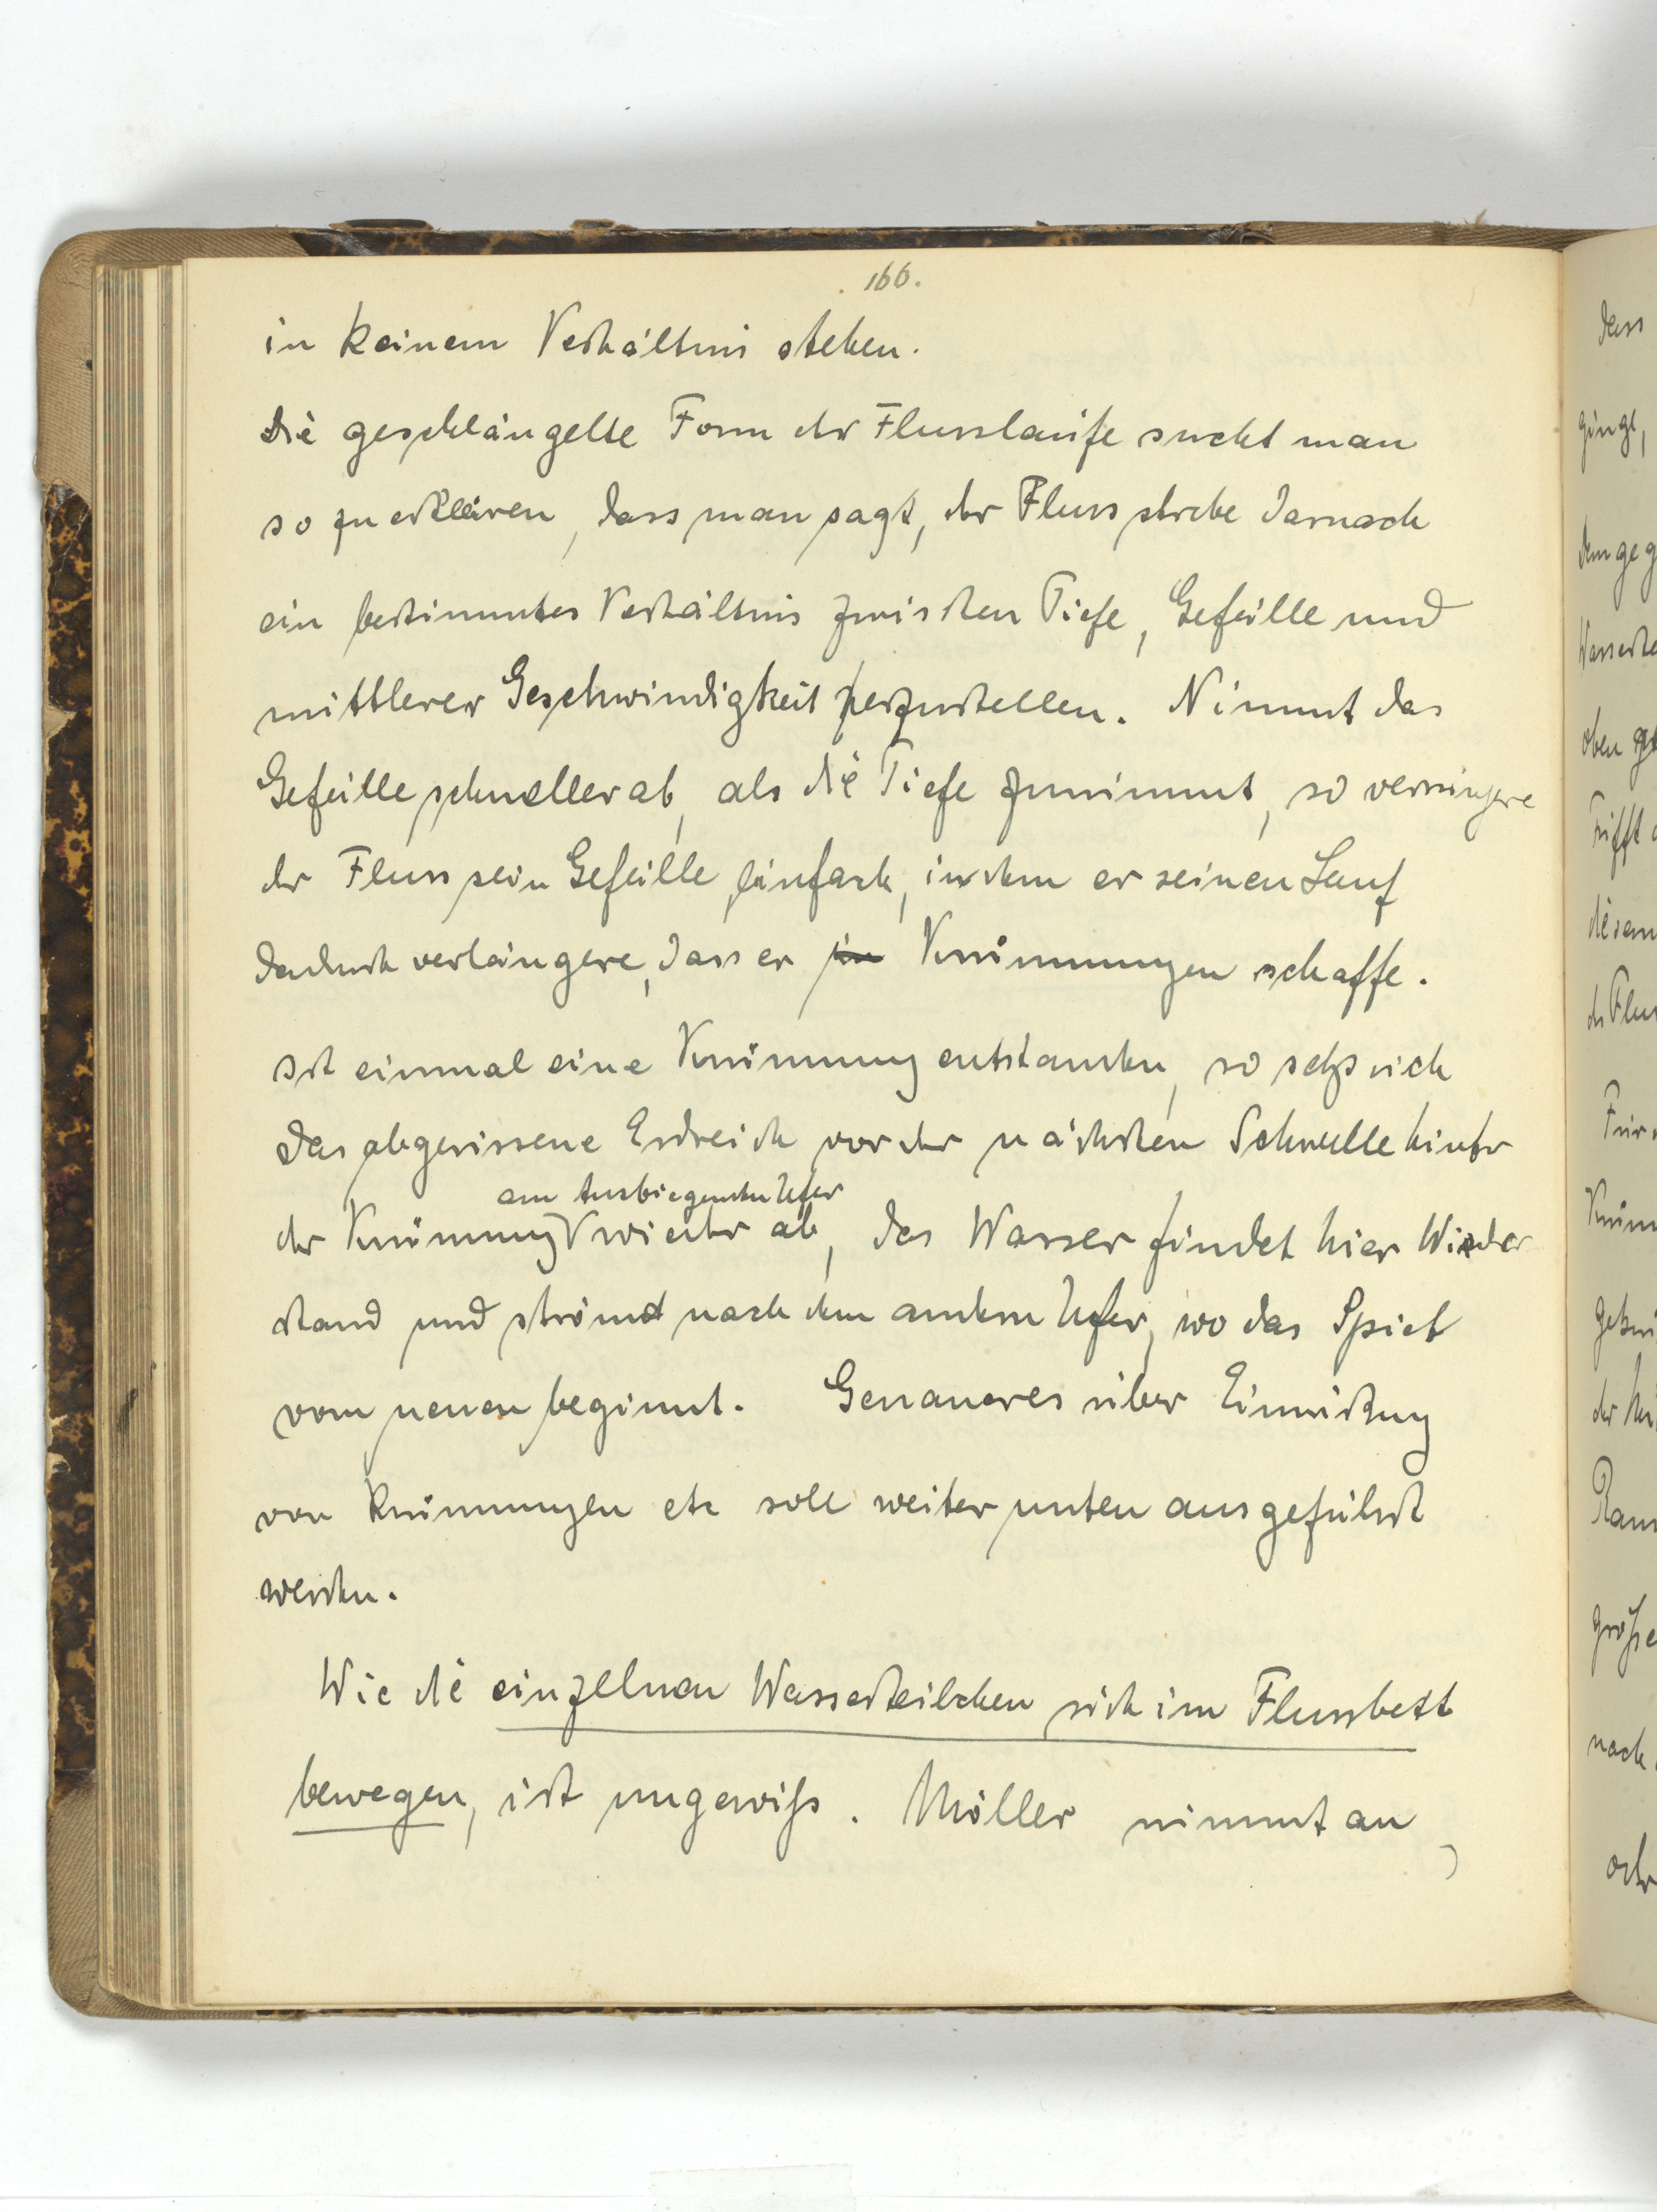 166.
in keinem Verhältnis stehen.
Die geschlängelte Form der Flussläufe sucht man
so zu erklären, dass man sagt, der Fluss strebe darnach
ein bestimmtes Verhältnis zwischen Tiefe, Gefälle und
mittlerer Geschwindigkeit herzustellen. Nimmt das
Gefälle schneller ab, als die Tiefe zunimmt, so verringere
der Fluss sein Gefälle einfach, indem er seinen Lauf
dadurch verlängere, dass er in Krümmungen schaffe.
Ist einmal eine Krümmung entstanden, so setzt sich
das abgerissene Erdreich vor der nächsten Schwelle hinter
am Ausbiegenden Ufer
der Krümmung wieder ab, das Wasser findet hier Wieder
stand und strömt nach dem andern Ufer, wo das Spiel
vom neuen beginnt. Genaueres über Einwirkung
von Krümmungen etc soll weiter unten ausgeführt
werden.
Wie die einzelnen Wasserteilchen sich im Flussbett
bewegen, ist ungewiß. Möller nimmt an,
dass
gingt,
dem geg
Wasserte
oben
Trifft
diesem
der Flus
Für
Krüm
gekrü
der
Raum
größe
nach
oder